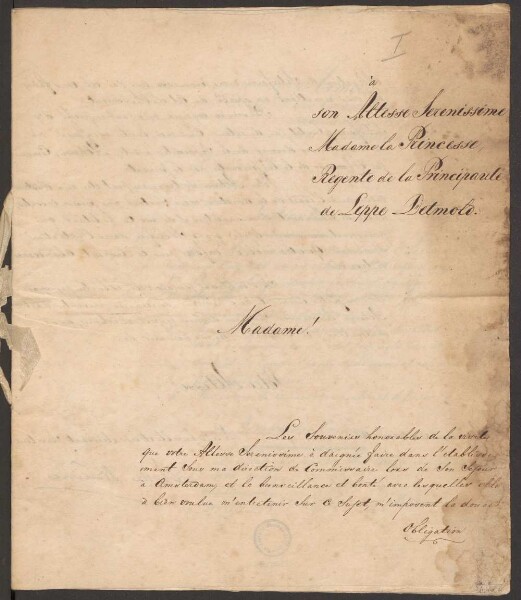 I
à
son Altesse Serenissime
Madame la Princesse
Regente de la Principauté
de Leppe Detmold.
Madame!
Les Souvenirs honorables de la visite
que votre Altesse Serenissime à daignée faire dans l'etablisse
ment sous ma direction de Commissaire lors de Son Sejour
à Amsterdam, et la bienveillance et bonté avec lesquelles elle
à bien voulue m'entretenir sur ce Sujet, m'imposent la
Obligation